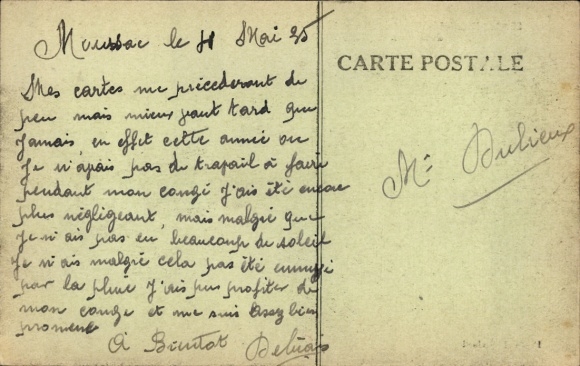 Moussac le 11 Mai 35
Mes cartes me précéderont de
peu mais mieux vaut tard que
Jamais, en effet cette année ou
Je n'avais pas de travail à faire
pendant mon congé J'ais été encore
plus négligeant, mais malgré que
Je n'ais pas eu beaucoup de soleil
Je n'ais malgré cela pas été ennuyé
par la pluie J'ais pus profiter de
mon conge et me suis asez bien
promené
A Bientot
CARTE POSTALE
Mr Dulieux